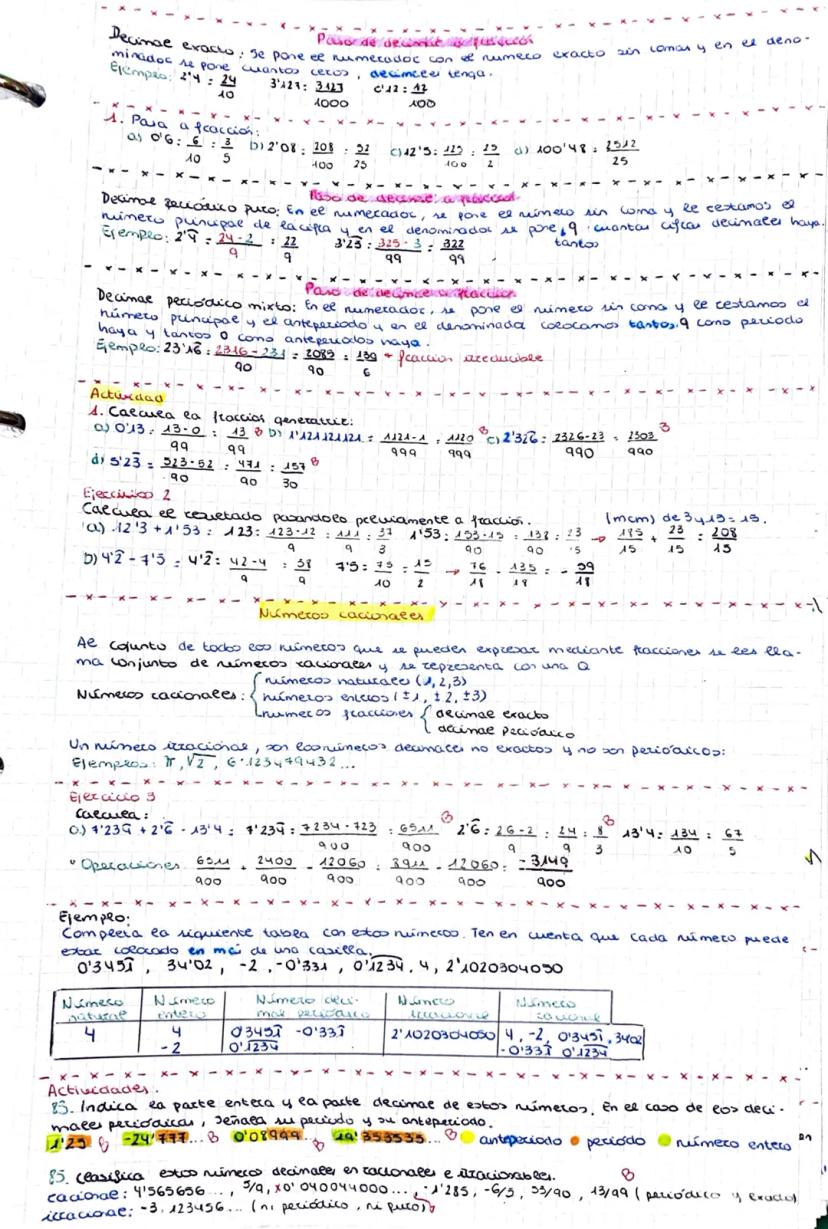 Paso de decimal a fracción
Decimal exacto: Se pone el numerador con el número exacto sin comas y en el deno-
minador se pone cuantos ceros, decimales tenga.
Ejemplo: 2'4 = 24/10 3'123 = 3123/1000 0'12 = 12/100
1. Pasa a fracción:
a) 0'6 = 6/10 = 3/5 b) 2'08 = 208/100 = 52/25 c) 12'5 = 125/100 = 25/2 d) 100'48 = 2512/25
Paso de decimal a fracción
Decimal periódico puro: En el numerador, se pone el número sin coma y le restamos el
número principal de la cifra y en el denominador se pone 9 cuantas cifras decimales haya.
tantos
Ejemplo: 2'4 = 24-2/9 = 22/9 3'23 = 325-3/99 = 322/99
Paso de decimal a fracción
Decimal periódico mixto: En el numerador, se pone el número sin coma y le restamos el
número principal y el anteperiodo y en el denominador colocamos tantos 9 como periodo
haya y tantos 0 como anteperiodos haya.
Ejemplo: 23'16 = 2316-231/90 = 2085/90 = 139/6 → fracción irreducible
Actividad
1. Calcula la fracción generatriz:
a) 0'13 = 13-0/99 = 13/99 b) 1'121121121 = 1121-1/999 = 1120/999 c) 2'326 = 2326-23/990 = 2303/990
d) 5'23 = 523-52/90 = 471/90 = 157/30
Ejercicio 2
Calcula el resultado pasandolo previamente a fracción. (mcm) de 3 y 15 = 15.
a) 12'3 + 1'53 = 123 = 123-12/9 = 111/9 = 37/3 1'53 = 153-15/90 = 138/90 = 23/15 → 185/15 + 23/15 = 208/15
b) 4'2 - 7'5 = 4'2 = 42-4/9 = 38/9 7'5 = 75/10 = 15/2 → 76/18 - 135/18 = - 59/18
Números racionales
Al cojunto de todos los números que se pueden expresar mediante fracciones se les lla-
ma conjunto de números racionales y se representa con una Q
números naturales (1, 2, 3)
Números racionales: números enteros (±1, ±2, ±3)
números fracciones decimal exacto
decimal periódico
Un número irracional, son los números decimales no exactos y no son periódicos:
Ejemplos: π, √2, 6'123479432...
Ejercicio 3
Calcula:
a) 7'239 + 2'6 - 13'4 = 7'239 = 7234-723/900 = 6511/900 2'6 = 26-2/9 = 24/9 = 8/3 13'4 = 134/10 = 67/5
Operaciones 6511/900 + 2400/900 - 12060/900 = 8911/900 - 12060/900 = -3149/900
Ejemplo:
Completa la siguiente tabla con estos números. Ten en cuenta que cada número puede
estar colocado en más de una casilla.
0'3451, 34'02, -2, -0'331, 0'1234, 4, 2'1020304050
Número natural Número entero Número decimal periódico Número irracional Número racional
4 4 0'3451 -0'331 2'1020304050 4, -2, 0'3451, 3402
-2 0'1234 -0'331 0'1234
Actividades.
83. Indica la parte entera y la parte decimal de estos números. En el caso de los deci-
males periódicos, señala su periodo y su anteperiodo.
1'25 -24'777... 0'08999... 19'353535... anteperiodo periodo número entero
85. Clasifica estos números decimales en racionales e irracionales.
racional: 4'565656..., 5/9, 0'040044000..., -1'285, -6/5, 53/90, 13/99 (periódico y exacto)
irracional: -3,123456... (ni periódico, ni puro)